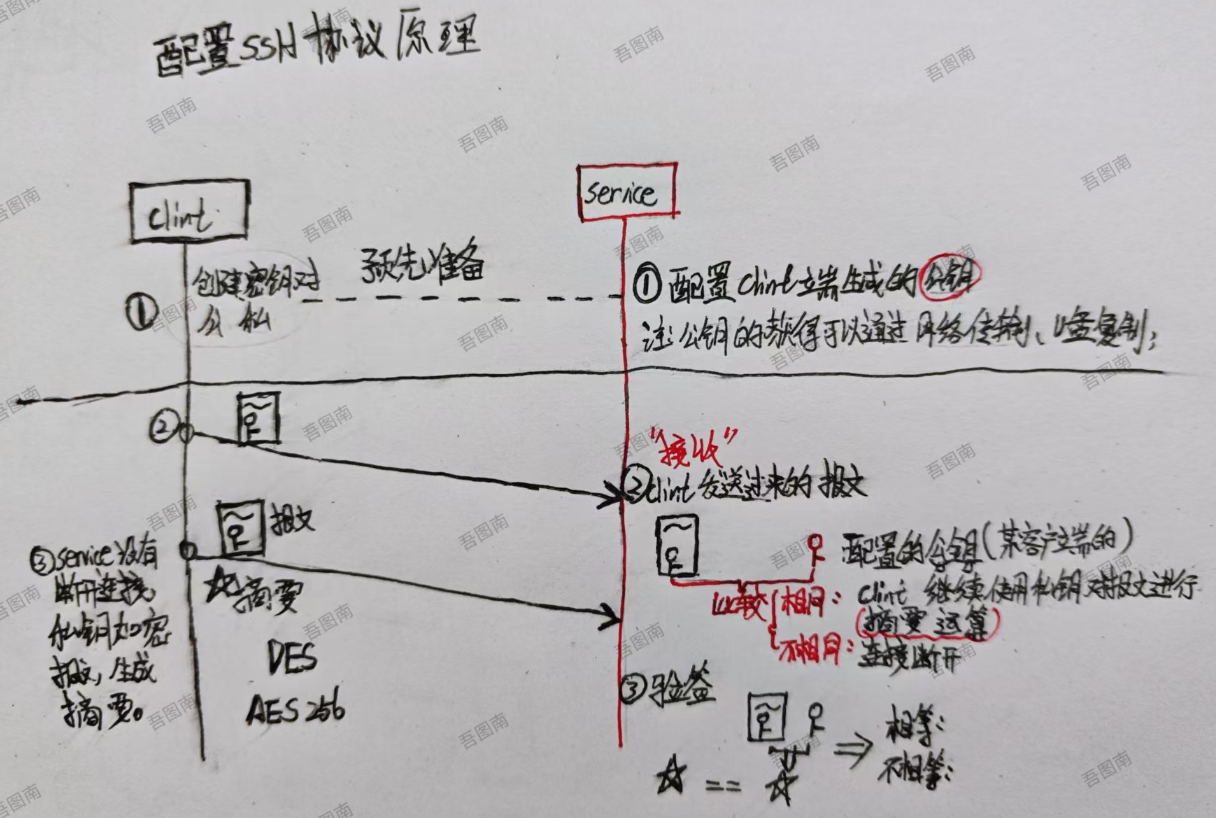 配置SSH协议原理
clint
service
预先准备
① 创建密钥对
公 私
① 配置clint端生成的公钥
注:公钥的获得可以通过网络传输、U盘复制;
②
"接收"
② clint发送过来的报文
报文
摘要
③ service没有
断开连接,
私钥加密
报文,生成
摘要。
DES
AES256
配置的公钥(某客户端的)
比较
相同: clint 继续使用私钥对报文进行
摘要运算
不相同: 连接断开
③ 验签
相等:
不相等:
==
吾图南